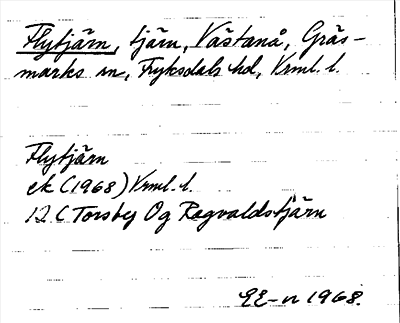 Flytjärn, tjärn, Västanå, Gräs-
marks sn, Fryksdals hd, Vrml. l.
Flytjärn
ek (1968) Vrml. l.
12 C Torsby Og Ragvaldstjärn
GE-n 1968.